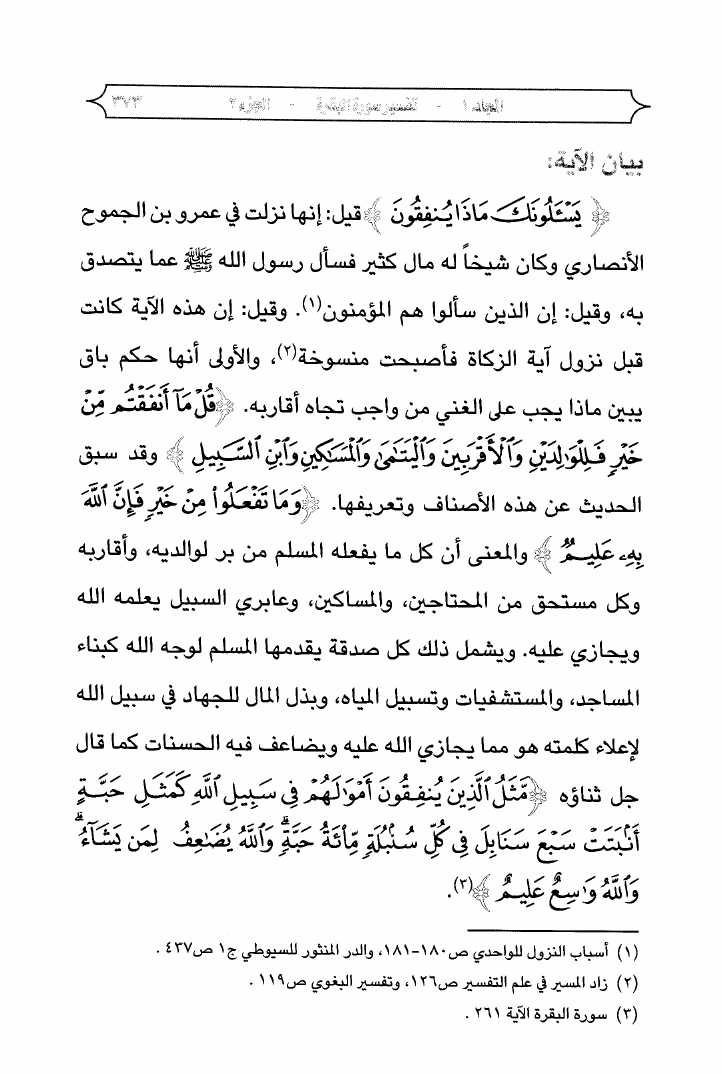 المجلد ١ - تفسير سورة البقرة - الجزء ٢ ٣٧٣
بيان الآية:
﴿ يَسْـَٔلُونَكَ مَاذَا يُنفِقُونَ ﴾ قيل: إنها نزلت في عمرو بن الجموح
الأنصاري وكان شيخاً له مال كثير فسأل رسول الله ﷺ عما يتصدق
به، وقيل: إن الذين سألوا هم المؤمنون(١). وقيل: إن هذه الآية كانت
قبل نزول آية الزكاة فأصبحت منسوخة(٢)، والأولى أنها حكم باق
يبين ماذا يجب على الغني من واجب تجاه أقاربه. ﴿قُلْ مَآ أَنفَقْتُم مِّنْ
خَيْرٍ فَلِلْوَٰلِدَيْنِ وَٱلْأَقْرَبِينَ وَٱلْيَتَٰمَىٰ وَٱلْمَسَٰكِينِ وَٱبْنِ ٱلسَّبِيلِ ﴾ وقد سبق
الحديث عن هذه الأصناف وتعريفها. ﴿وَمَا تَفْعَلُوا۟ مِنْ خَيْرٍ فَإِنَّ ٱللَّهَ
بِهِۦ عَلِيمٌ ﴾ والمعنى أن كل ما يفعله المسلم من بر لوالديه، وأقاربه
وكل مستحق من المحتاجين، والمساكين، وعابري السبيل يعلمه الله
ويجازي عليه. ويشمل ذلك كل صدقة يقدمها المسلم لوجه الله كبناء
المساجد، والمستشفيات وتسبيل المياه، وبذل المال للجهاد في سبيل الله
لإعلاء كلمته هو مما يجازي الله عليه ويضاعف فيه الحسنات كما قال
جل ثناؤه ﴿مَّثَلُ ٱلَّذِينَ يُنفِقُونَ أَمْوَٰلَهُمْ فِى سَبِيلِ ٱللَّهِ كَمَثَلِ حَبَّةٍ
أَنۢبَتَتْ سَبْعَ سَنَابِلَ فِى كُلِّ سُنۢبُلَةٍ مِّا۟ئَةُ حَبَّةٍ ۗ وَٱللَّهُ يُضَٰعِفُ لِمَن يَشَآءُ ۗ
وَٱللَّهُ وَٰسِعٌ عَلِيمٌ ﴾(٣).
(١) أسباب النزول للواحدي ص١٨٠-١٨١، والدر المنثور للسيوطي ج١ ص٤٣٧ .
(٢) زاد المسير في علم التفسير ص١٢٦، وتفسير البغوي ص١١٩ .
(٣) سورة البقرة الآية ٢٦١ .